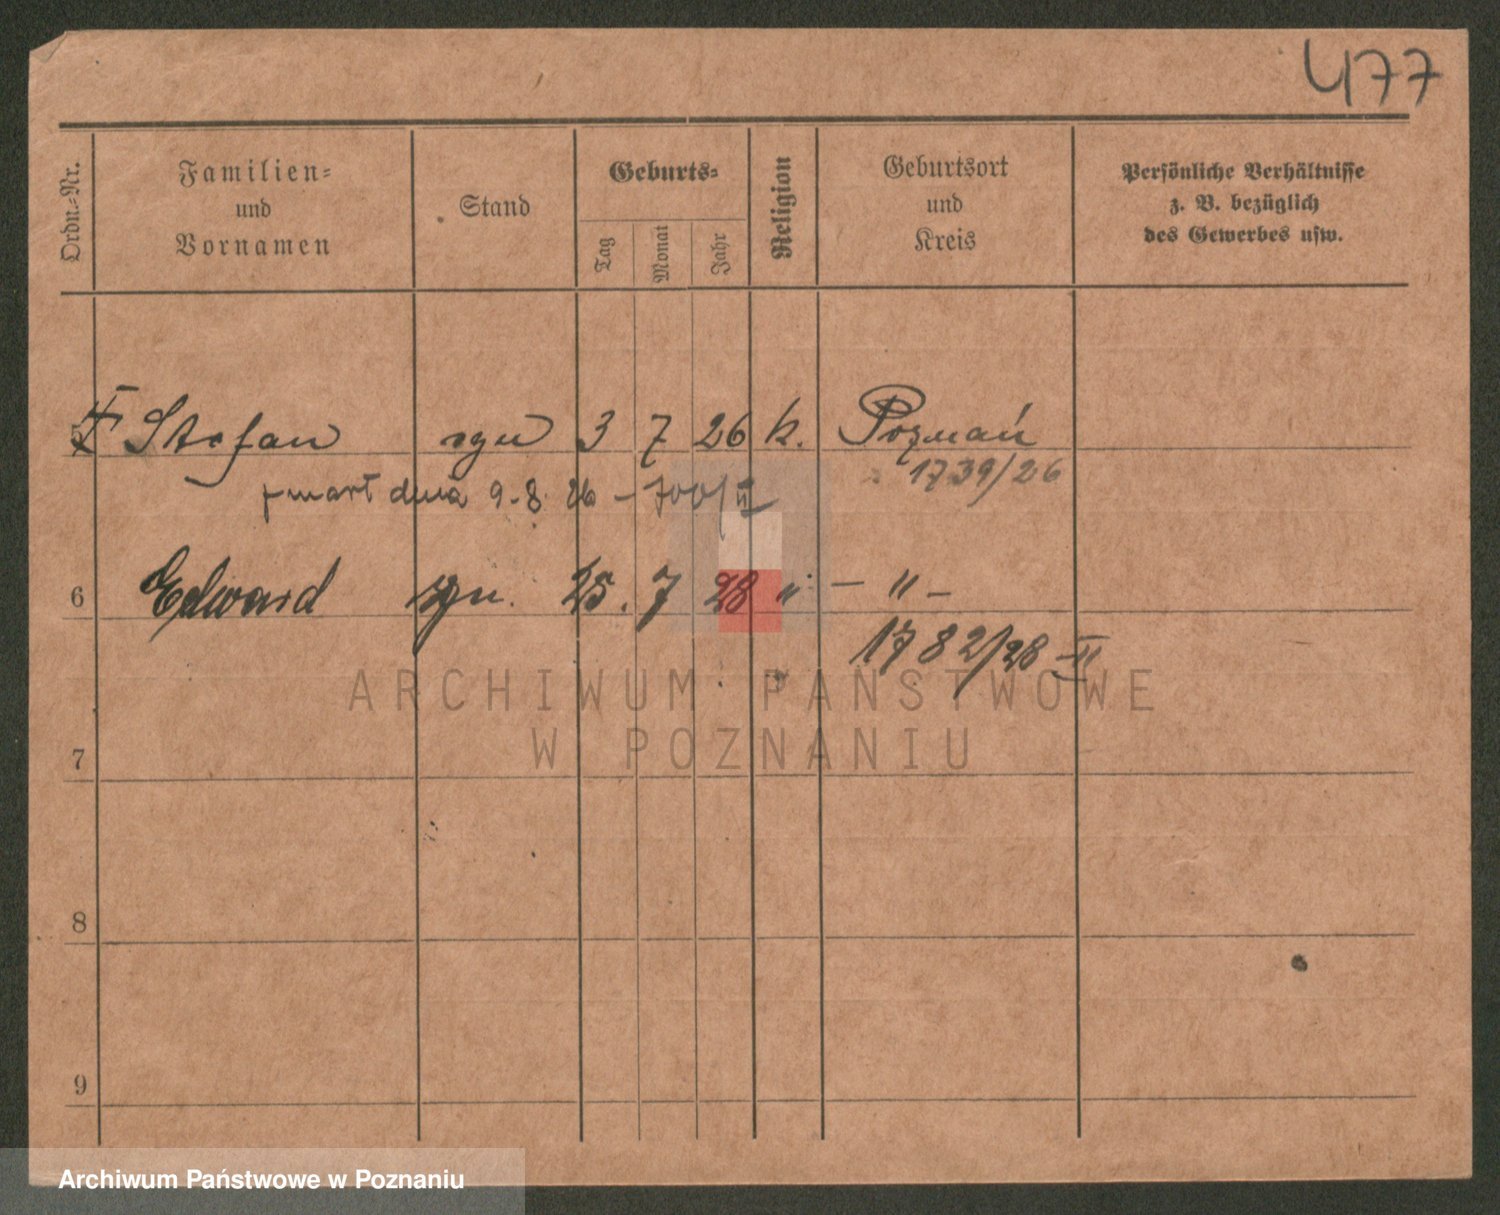 477
Ordn.-Nr.
Familien-
und
Vornamen
Stand
Geburts-
Tag
Monat
Jahr
Religion
Geburtsort
und
Kreis
Persönliche Verhältnisse
z. B. bezüglich
des Gewerbes usw.
5 Stefan syn 3 7 26 k. Poznań
1739/26
zmarł dnia 9.8.26 - 700/II
6 Edward syn. 25. 7 28 " - " -
1782/28 II
ARCHIWUM PAŃSTWOWE
W POZNANIU
7
8
9
Archiwum Państwowe w Poznaniu